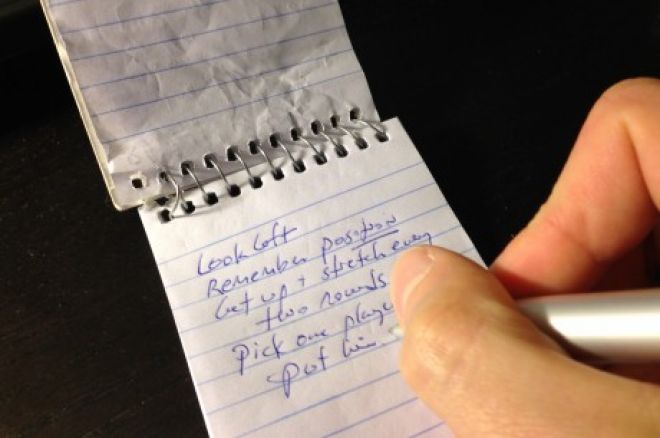 Look Left
Remember position
Get up + stretch every
two rounds
Pick one playe
put him